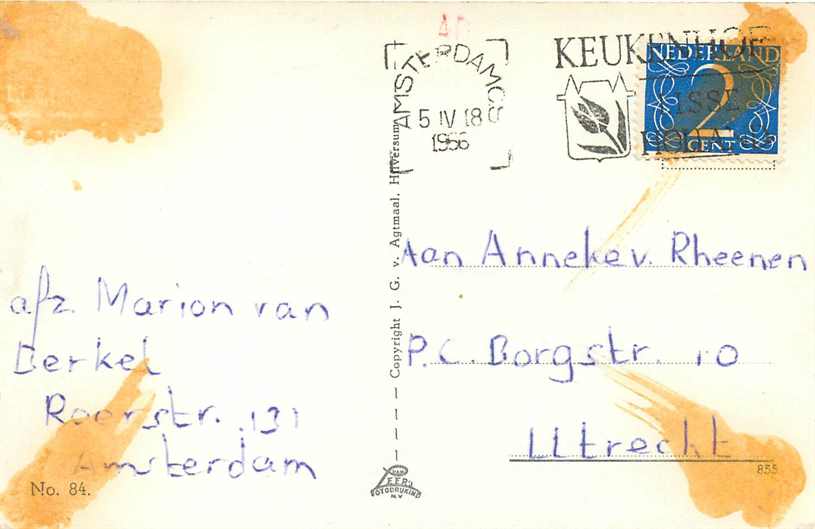 40
AMSTERDAM CS
5 IV 18
1956
KEUKENHOF
LISSE
HOLLAND
NEDERLAND
2
CENT
Copyright J. G. v. Agtmaal, Hilversum
Aan Anneke v. Rheenen
P.C. Borgstr. 10
Utrecht
afz. Marion van
Berkel
Roerstr. 131
Amsterdam
No. 84.
VAN
LEER'S
FOTODRUKIND.
N.V.
855